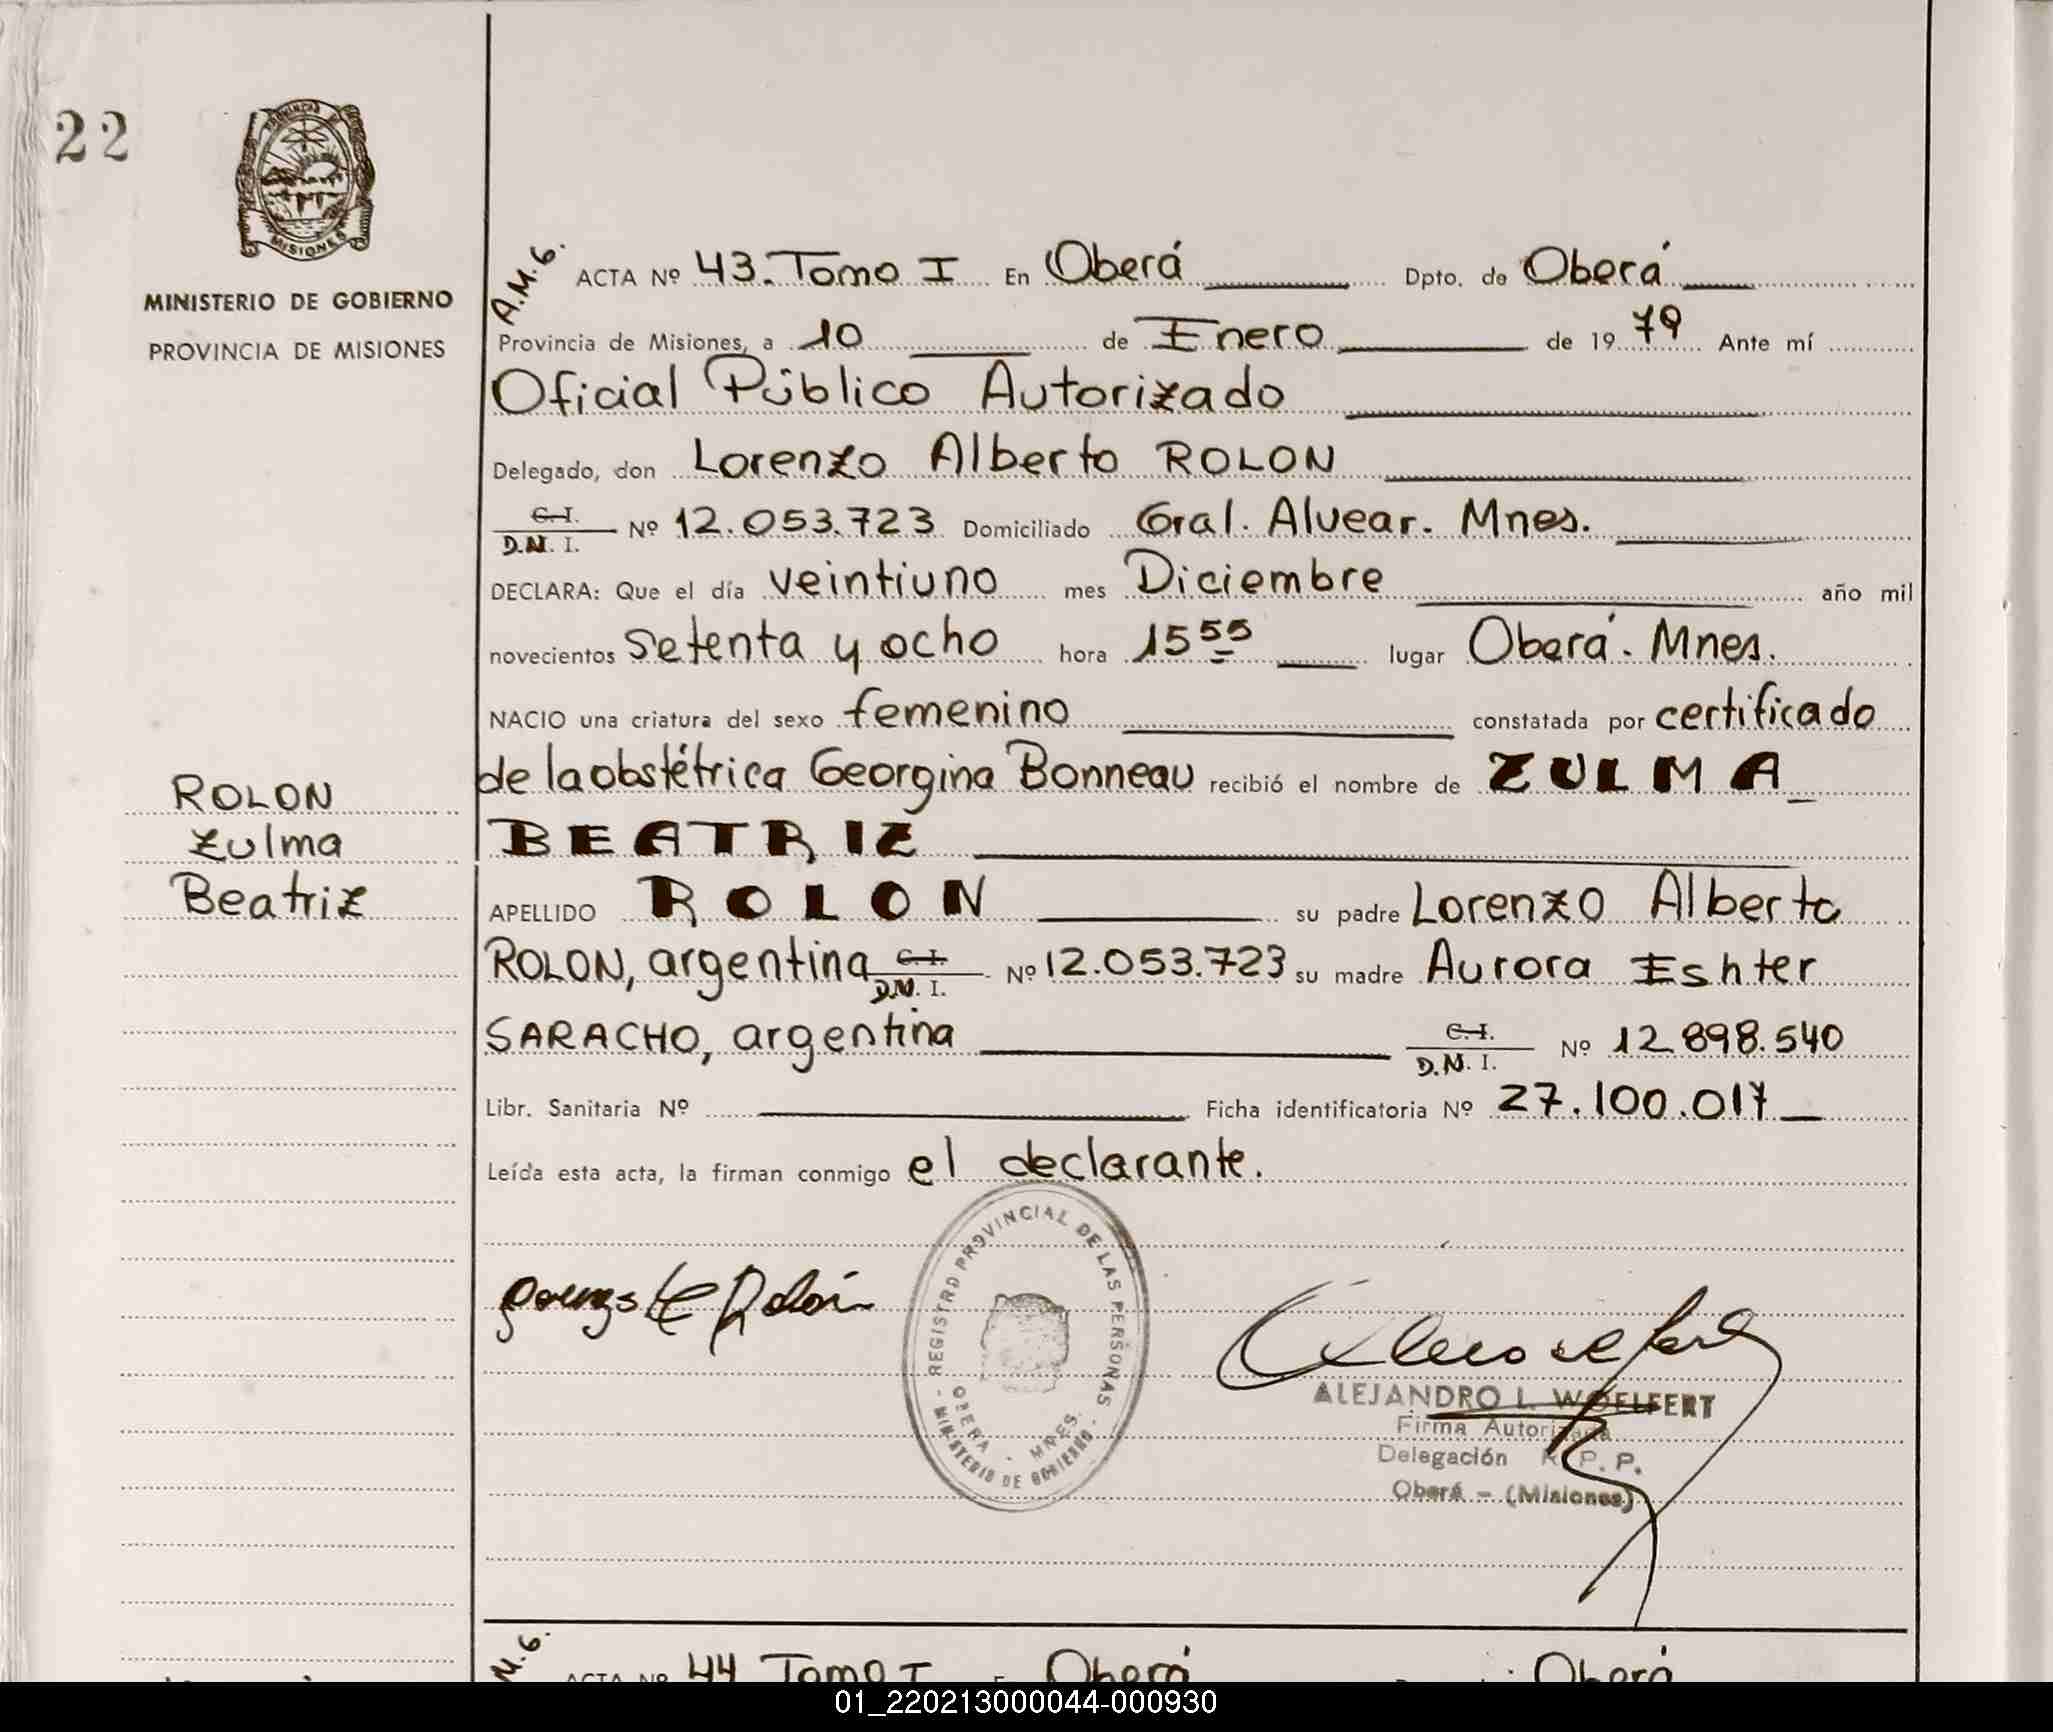 22
PROVINCIA
MISIONES
MINISTERIO DE GOBIERNO
PROVINCIA DE MISIONES
A.M.G.
ACTA Nº 43. Tomo I En Oberá Dpto. de Oberá
Provincia de Misiones, a 10 de Enero de 1979 Ante mí
Oficial Público Autorizado
Delegado, don Lorenzo Alberto ROLON
C.I.
D.N.I. Nº 12.053.723 Domiciliado Gral. Alvear. Mnes.
DECLARA: Que el día veintiuno mes Diciembre año mil
novecientos setenta y ocho hora 15 55 lugar Oberá. Mnes.
NACIO una criatura del sexo femenino constatada por certificado
de la obstétrica Georgina Bonneau recibió el nombre de ZULMA
BEATRIZ
ROLON
Zulma
Beatriz
APELLIDO ROLON su padre Lorenzo Alberto
ROLON, argentina C.I. D.N.I. Nº 12.053.723 su madre Aurora Eshter
SARACHO, argentina C.I. D.N.I. Nº 12.898.540
Libr. Sanitaria Nº Ficha identificatoria Nº 27.100.017
Leída esta acta, la firman conmigo el declarante.
REGISTRO PROVINCIAL DE LAS PERSONAS
OBERA - MNES.
MINISTERIO DE GOBIERNO
Rolón
ALEJANDRO L. WOELFERT
Firma Autorizada
Delegación R. P. P.
Oberá - (Misiones)
M.G.
ACTA Nº 44 Tomo I Oberá Oberá
01_220213000044-000930